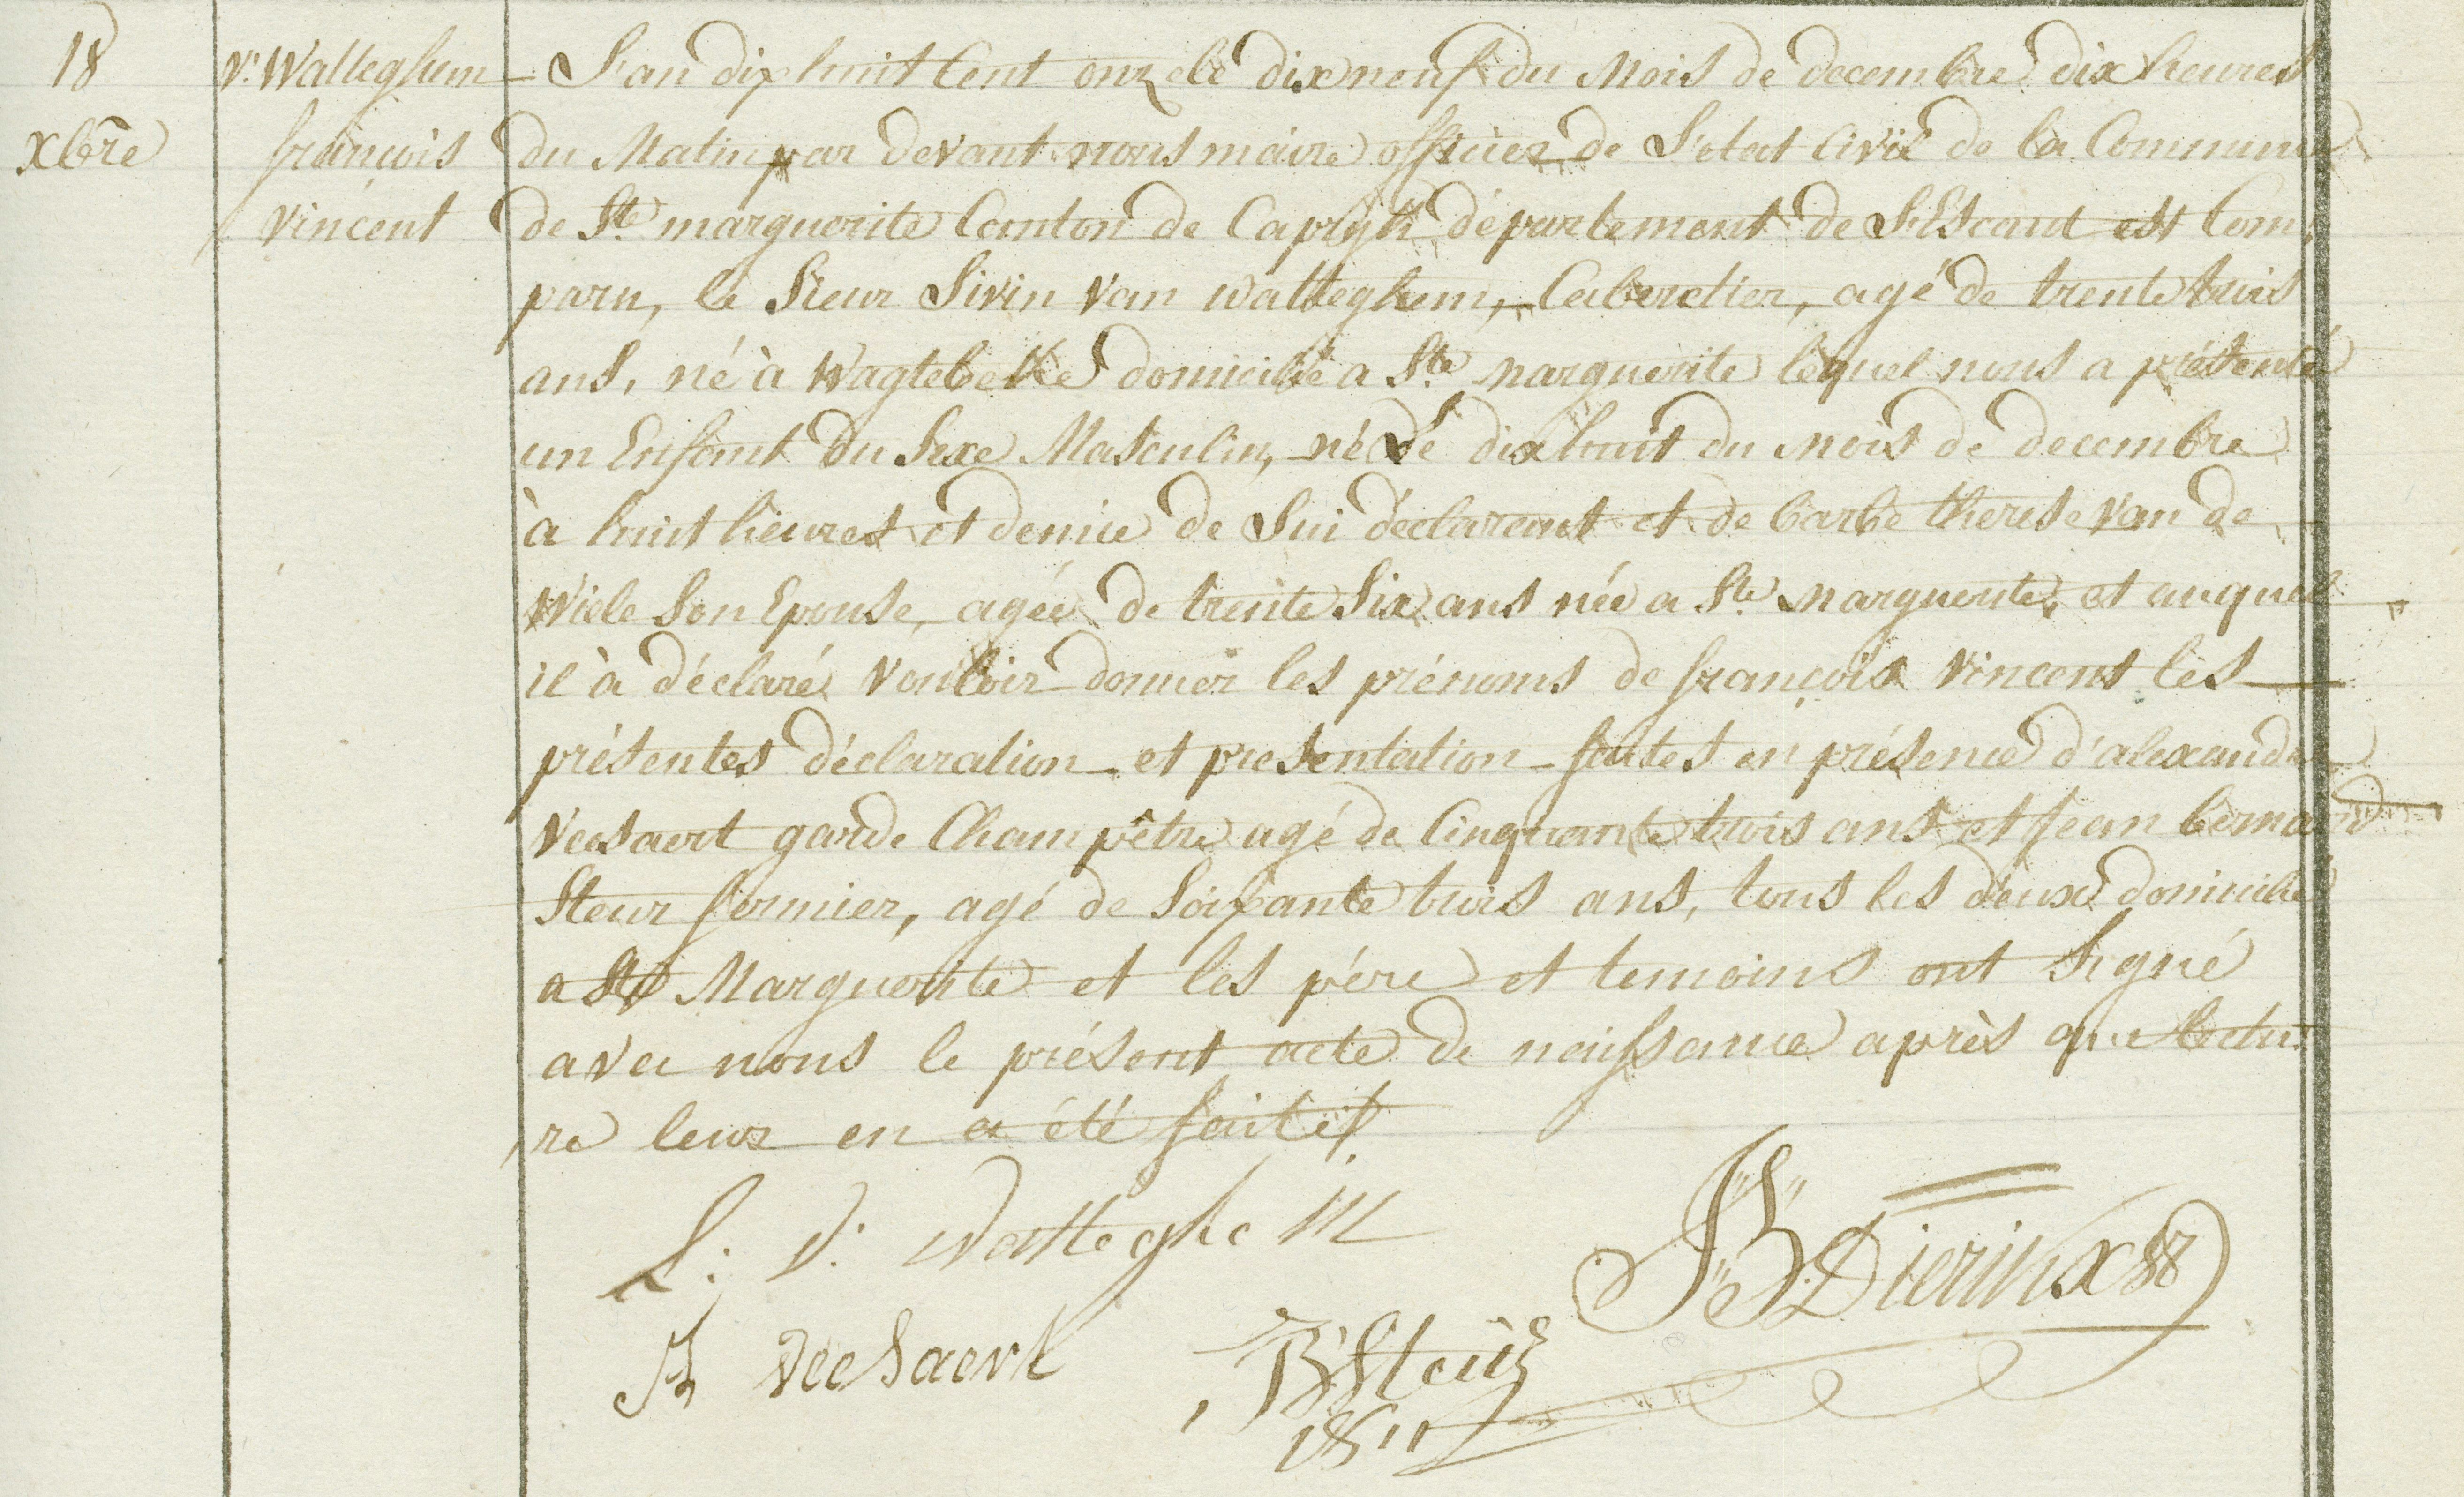 18
xbre
V. Watteghem
françois
vincent
L'an dix huit Cent onze le dix neuf du Mois de decembre dix heures
du Matin par devant nous maire officier de L'etat Civil de la Commune
de Ste marguerite Comton de Capryk département de L'Escaut est Com,
paru, le Sieur Livin Van watteghem, Cabaretier, agé de trente trois
ans, né à Wagtebeke domicilié a Ste marguerite lequel nous a présenté
un Enfant du Sexe Masculin, né le dix huit du mois de decembre
à huit heures et demie de Lui déclarant et de barbe therese Van de
Wiele Son Epouse, agée de trente Six ans née a Ste marguerite, et auquel
il à déclaré Vouloir donner les prénoms de françois Vincent les
présentes déclaration et presentation faites en présence d'alexandre
Veesaert garde Champêtre agé de Cinquante trois ans et Jean bernard
Steur fermier, agé de Soixante trois ans, tous les deux domicilié
a Ste Marguerite et les pére et temoins ont Signé
avec nous le présent acte de naissance après que lectu
re leur en a été faite
L: V: Watteghem
A Veesaert
JB Steur
1811
JB Dierikx